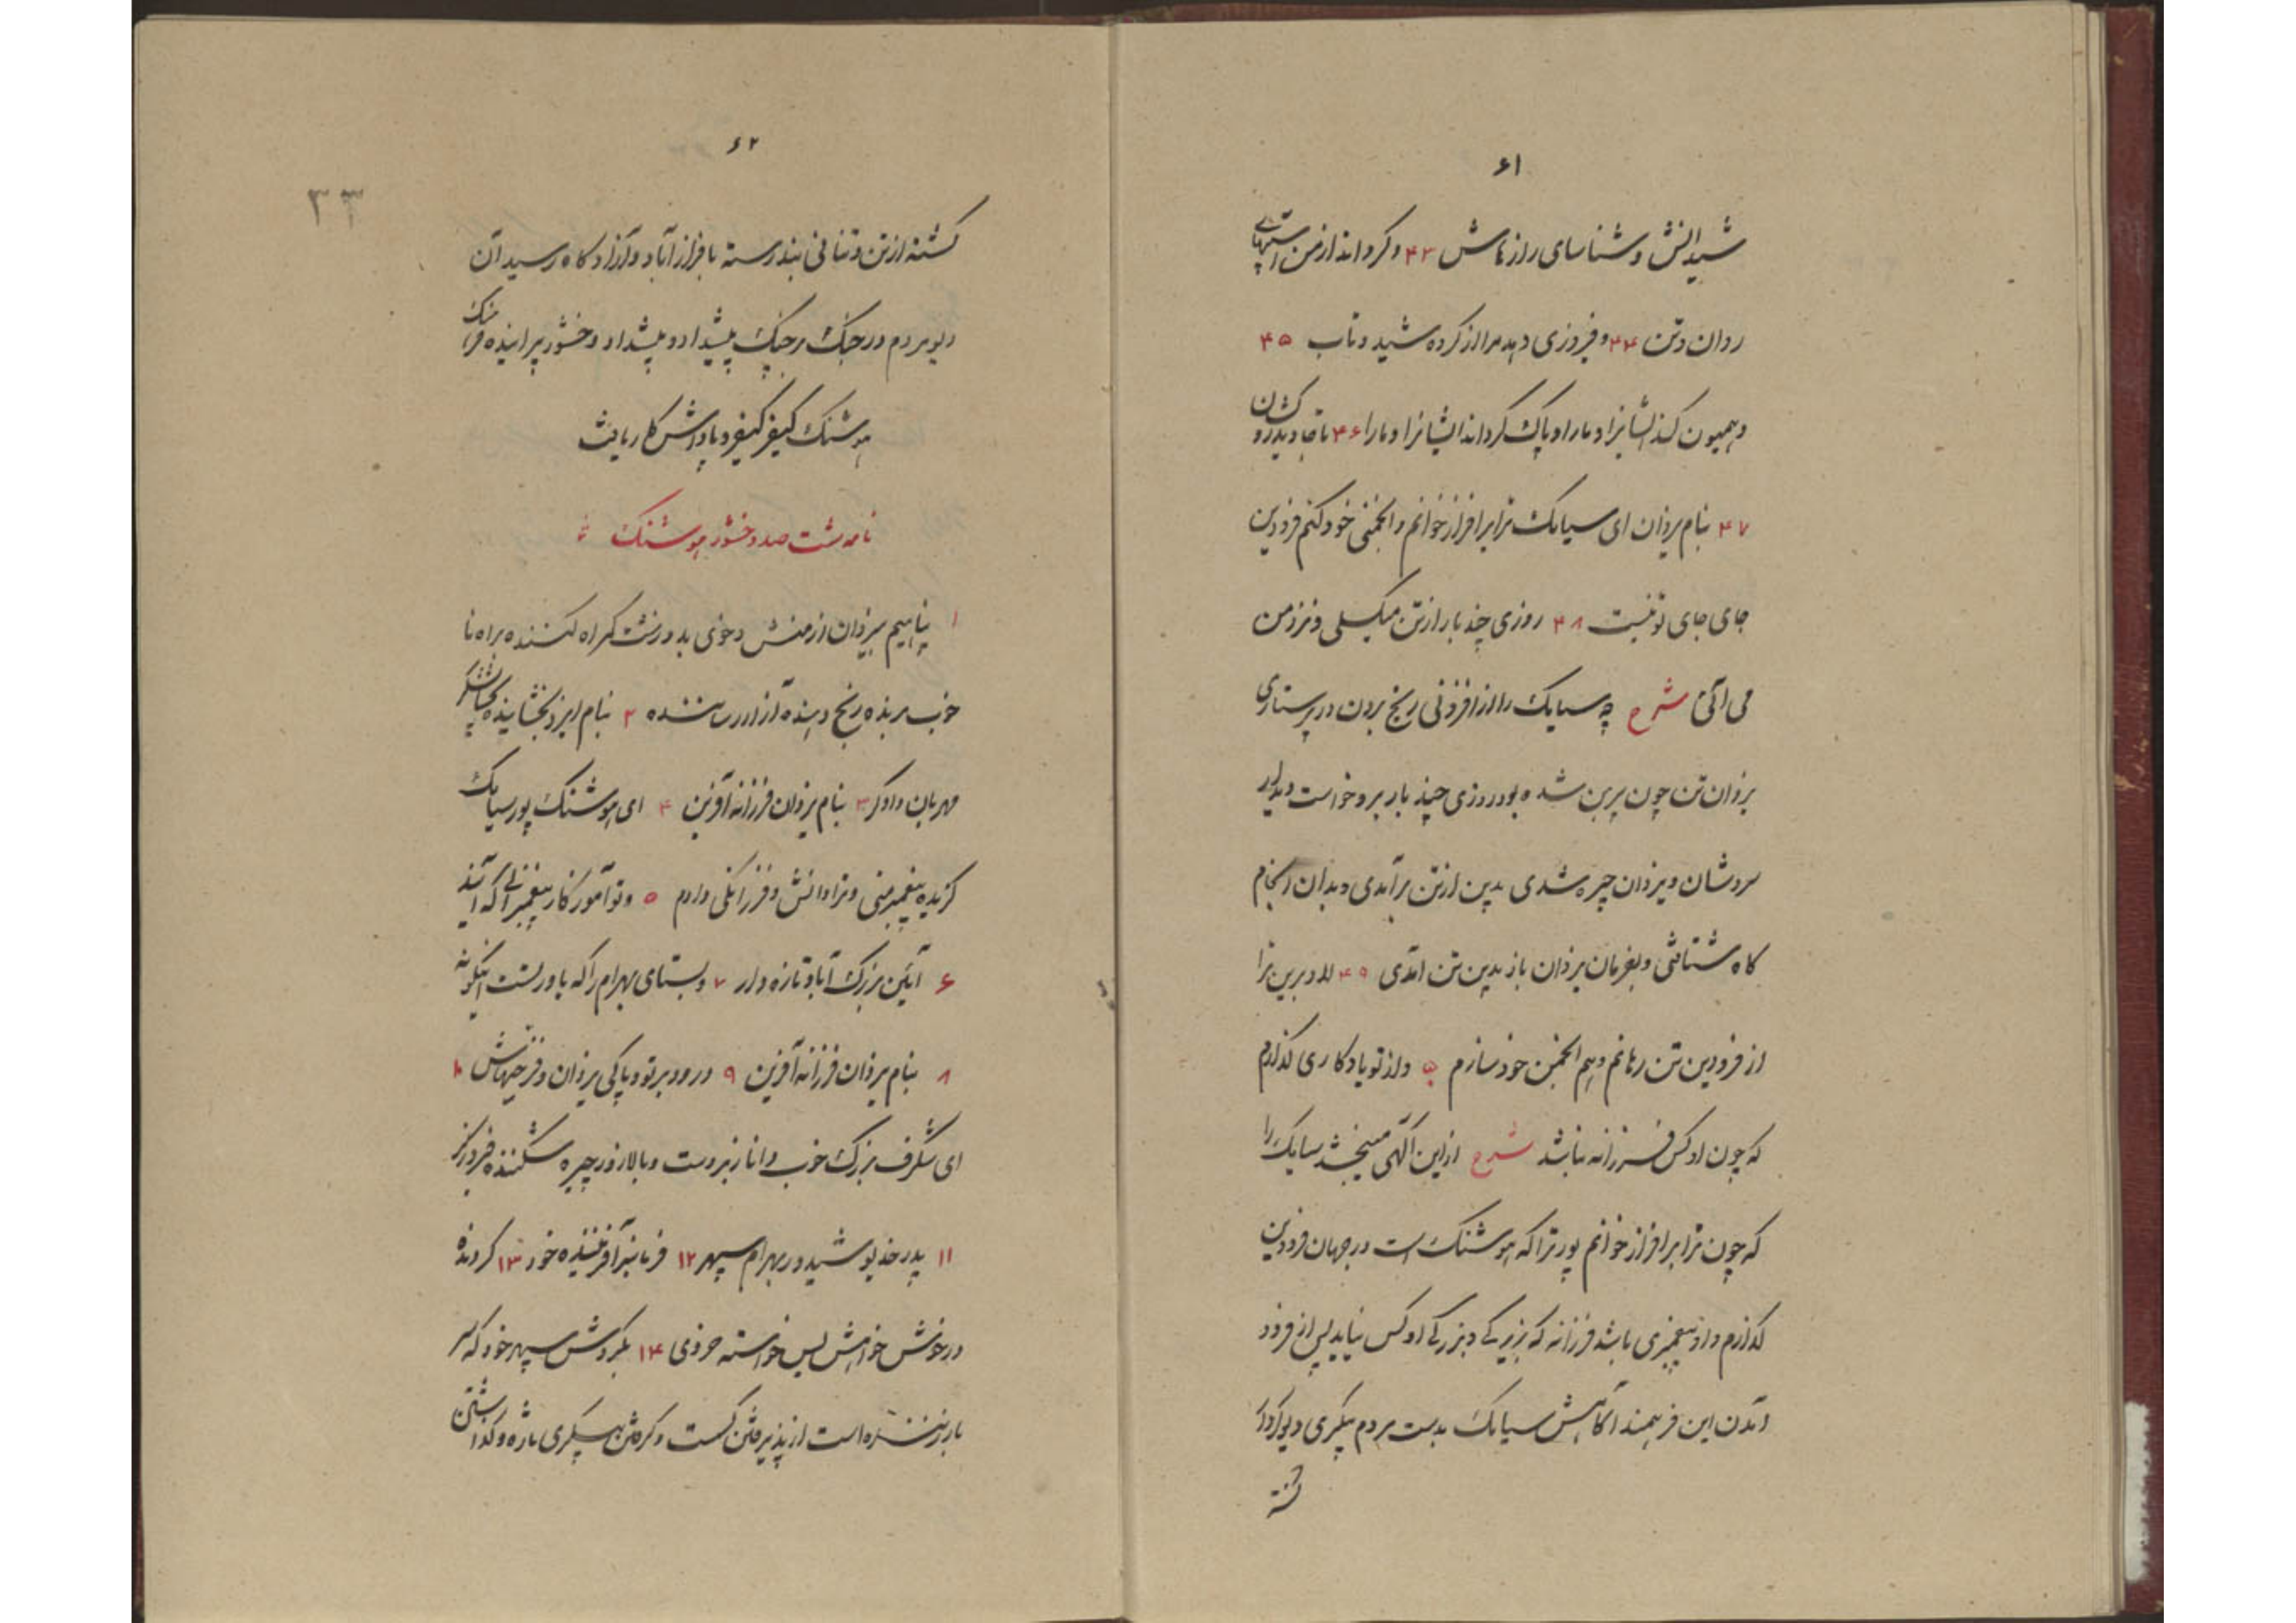 ۶۱
شیدانش و شناسای رازهاش ۴۳ و گرداند از من
روان و تن ۴۴ و فیروزی دهد مر از کرده شید و تاب ۴۵
و همیون کند ایشانرا و مارا و پاک گرداند ایشانرا و مارا ۴۶ تا جاوید
۴۷ بنام یزدان ای سیامک ترا برافراز خوانم و انجمنی خود کنم فرودین
جای جای تو نیست ۴۸ روزی چند بار از تن میگسلی و نزد من
می آئی شرح چه سیامک را از افزونی رنج بردن در پرستاری
یزدان تن چون پرین شده بود روزی چند بار برو خواست دیدار
سروشان و یزدان چیره شدی بدین از تن برآمدی و بدان انجام
کاه شتافتی و بفرمان یزدان باز بدین تن آمدی ۴۹ ترا
از فرودین تن رهانم و هم انجمن خود سازم ۵۰ و از تو یادکاری گذارم
که چون او کس فرزانه نباشد شرح ازین آگهی میبخشد سیامک را
که چون ترا برافراز خوانم پور ترا که هوشنگ است در جهان فرودین
گذارم و او پیغمبری باشد فرزانه که بزیرکی و بزرگی او کس نیاید پس از فرود
آمدن این فرهمند آگاهش سیامک بدست مردم پیکری دیو کردار
کشته
۶۲
۳۳
کشته از تن و تنانی بند رسته بافراز آباد و آزاد کاه رسید آن
دیو مردم در جنک مرجنک پیشداد و پیشداد و خشور پراینده فرهنک
هوشنک کیفر کیفر و پاداش کار یافت
نامه شت صد و خشور هوشنک
۱ پناهیم بیزدان از منش و خوی بد و زشت گمراه کننده براه نا
خوب برنده رنج دهنده آزار رساننده ۲ بنام ایزد بخشاینده بخشایشگر
مهربان دادگر ۳ بنام یزدان فرزانه آفرین ۴ ای هوشنک پور سیامک
گزیده پیغمبر منی و ترا دانش و فرزانگی دادم ۵ و تو آموزگار پیغمبرانی که آیند
۶ آئین بزرک آباد تازه دار ۷ و بستای بهرام را که یاور تست اینگونه
۸ بنام یزدان فرزانه آفرین ۹ درود بر تو و پاکی یزدان و فرجیهاش ۱۰
ای شگرف بزرک خوب دانا زبردست و بالا زور چیره شکننده فیروزگر
۱۱ پدر خدیو شید ور بهرام سپهر ۱۲ فرمانبر آفریننده خود ۱۳ گردنده
در خنش خواهش بس خواسته خودی ۱۴ بگردش سپهر خود که سر
باز زننده است از پذیرفتن گسست و گرفتن پیکری تازه و گذاشتن